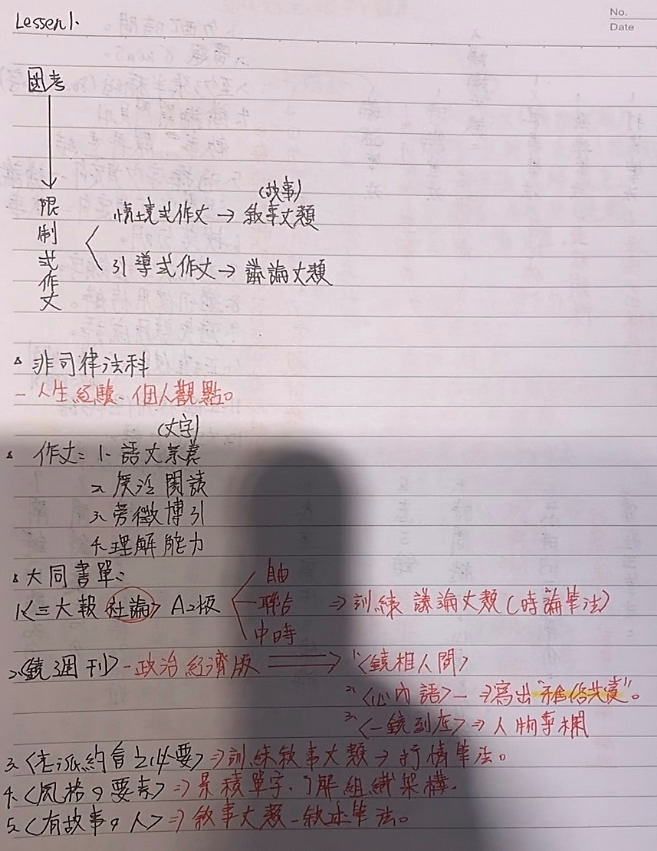 Lesson 1.
No.
Date
國考
限制式作文
(故事)
情境式作文 → 敘事文類
引導式作文 → 議論文類
△ 非司律法科
- 人生經驗、個人觀點。
(文字)
△ 作文: 1. 語文素養
2. 廣泛閱讀
3. 旁徵博引
4. 理解能力
△ 大同書單:
1.〈三大報社論〉A2版
自由
聯合 ⇒ 訓練 議論文類(時論筆法)
中時
2.〈鏡週刊〉- 政治經濟版 ⇒ 1.〈鏡相人間〉
2.〈心內話〉- ⇒ 寫出"
3.〈一鏡到底〉⇒ 人物專欄
3.〈老派約會之必要〉⇒ 訓練敘事文類 → 抒情筆法。
4.〈風格的要素〉⇒ 累積單字、了解組織架構。
5.〈有故事的人〉⇒ 敘事文類 - 敘述筆法。